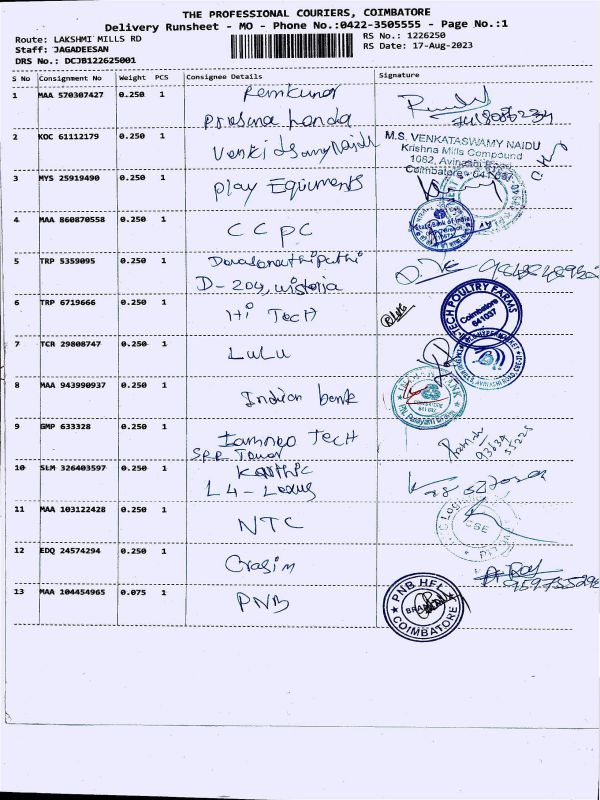 THE PROFESSIONAL COURIERS, COIMBATORE
Delivery Runsheet - MO - Phone No.:0422-3505555 - Page No.:1
Route: LAKSHMI MILLS RD
RS No.: 1226250
Staff: JAGADEESAN
RS Date: 17-Aug-2023
DRS No.: DCJB122625001
S No Consignment No Weight PCS Consignee Details Signature
1 MAA 570307427 0.250 1 Remkumar
Prasana handa
2 KOC 61112179 0.250 1 Venkidsamy Naidu
M.S. VENKATASWAMY NAIDU
Krishna Mills Compound
1062, Avinashi Road
Coimbatore - 641 037
3 MYS 25919490 0.250 1 Play Equiments
4 MAA 860870558 0.250 1 CCPC
State Bank of India
5 TRP 5359095 0.250 1
D-204, wistoria
6 TRP 6719666 0.250 1 Hi Tech
-TECH POULTRY FARMS
Coimbatore
641037
7 TCR 29808747 0.250 1 LuLu
8 MAA 943990937 0.250 1 Indian bank
9 GMP 633328 0.250 1 Iamneo Tech
SPP Tower
10 SLM 326403597 0.250 1 Karthic
L4-Lexus
11 MAA 103122428 0.250 1 NTC
12 EDQ 24574294 0.250 1 Grasim
13 MAA 104454965 0.075 1 PNB
PNB HFL
BRANCH
COIMBATORE